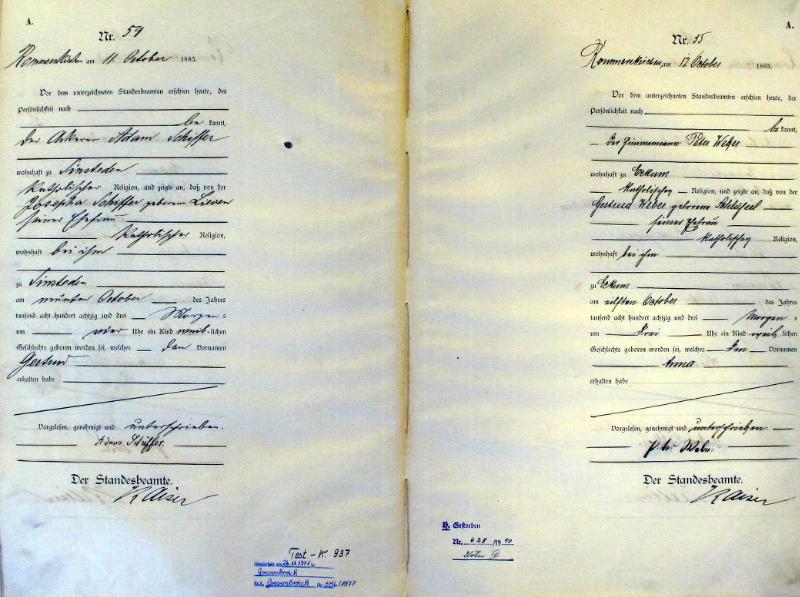 A.
Nr. 54
Rommerskirchen am 11 October 1883.
Vor dem unterzeichneten Standesbeamten erschien heute, der
Persönlichkeit nach
be kannt,
der Ackerer Adam Schiffer
wohnhaft zu Sinsteden
katholischer Religion, und zeigte an, daß von der
Josepha Schiffer geborene Lieven
seiner Ehefrau
katholischer Religion,
wohnhaft bei ihm
zu Sinsteden
am neunten October des Jahres
tausend acht hundert achtzig und drei Morgens
um vier Uhr ein Kind weiblichen
Geschlechts geboren worden sei, welches den Vornamen
Gertrud
erhalten habe
Vorgelesen, genehmigt und unterschrieben.
Adam Schiffer
Der Standesbeamte.
Kaiser
Test.-K. 937
Grevenbroich
Grevenbroich
A.
Nr. 55
Rommerskirchen am 12 October 1883.
Vor dem unterzeichneten Standesbeamten erschien heute, der
Persönlichkeit nach
be kannt,
der Zimmermann Peter Weber
wohnhaft zu Eckum
katholischer Religion, und zeigte an, daß von der
Gertrud Weber geborene
seiner Ehefrau
katholischer Religion,
wohnhaft bei ihm
zu Eckum
am elften October des Jahres
tausend acht hundert achtzig und drei Morgens
um drei Uhr ein Kind weiblichen
Geschlechts geboren worden sei, welches den Vornamen
Anna
erhalten habe
Vorgelesen, genehmigt und unterschrieben.
Peter Weber
Der Standesbeamte.
Kaiser
H. Gestorben
Nr. 628 / 1940
Köln